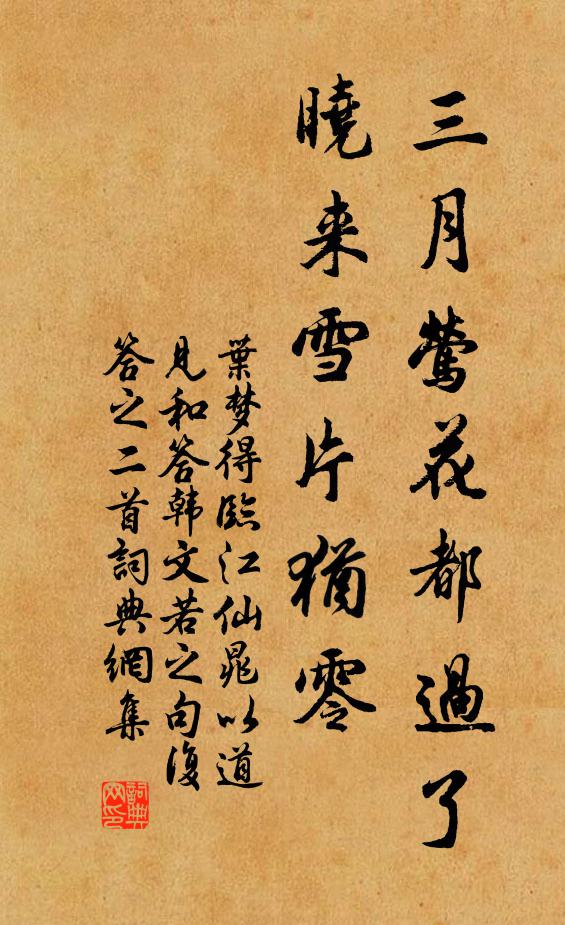 三月鶯花都過了
曉来雪片猶零
葉梦得臨江仙晁以道
見和答韩文若之句復
答之二首詞典網集
詞典网印